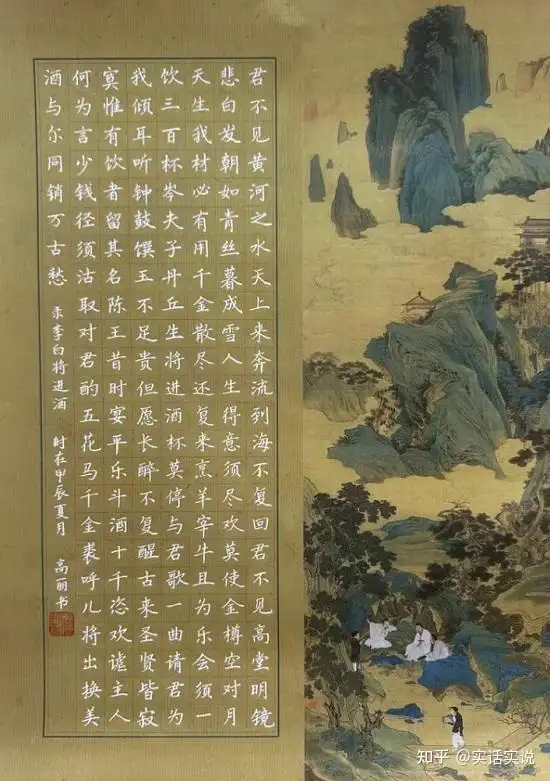 君不见黄河之水天上来奔流到海不复回君不见高堂明镜
悲白发朝如青丝暮成雪人生得意须尽欢莫使金樽空对月
天生我材必有用千金散尽还复来烹羊宰牛且为乐会须一
饮三百杯岑夫子丹丘生将进酒杯莫停与君歌一曲请君为
我倾耳听钟鼓馔玉不足贵但愿长醉不复醒古来圣贤皆寂
寞惟有饮者留其名陈王昔时宴平乐斗酒十千恣欢谑主人
何为言少钱径须沽取对君酌五花马千金裘呼儿将出换美
酒与尔同销万古愁 录李白将进酒 时在甲辰夏月 高丽书
知乎 @实话实说